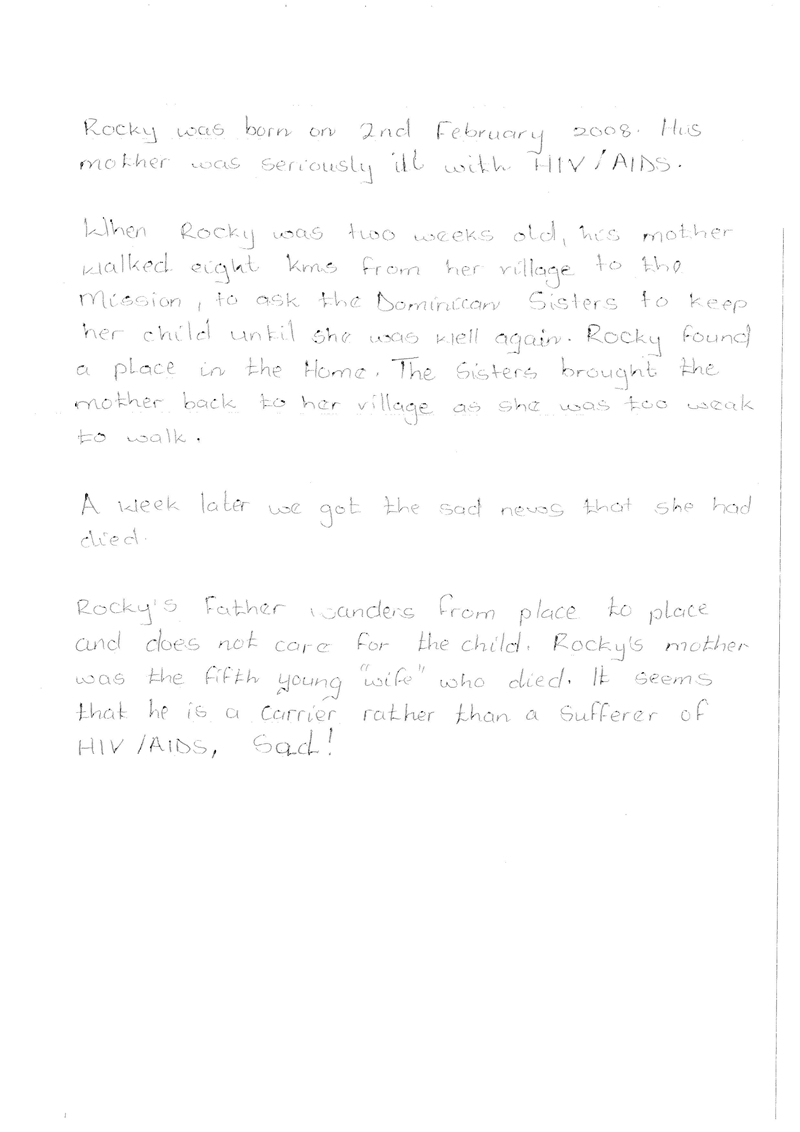 Rocky was born on 2nd February 2008. His
mother was seriously ill with HIV/AIDS.
When Rocky was two weeks old, his mother
walked eight kms from her village to the
Mission, to ask the Dominican Sisters to keep
her child until she was well again. Rocky found
a place in the Home. The Sisters brought the
mother back to her village as she was too weak
to walk.
A week later we got the sad news that she had
died.
Rocky's Father wanders from place to place
and does not care for the child. Rocky's mother
was the fifth young "wife" who died. It seems
that he is a carrier rather than a sufferer of
HIV/AIDS, Sad!